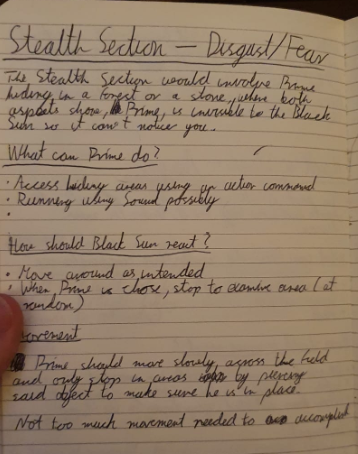 Stealth Section — Disgust/Fear
The Stealth Section would involve Prime
hiding in a forest or a store, where both
aspects show, Prime, is invisible to the Black
Sun so it can't notice you.
What can Prime do?
· Access hiding areas using an action command
· Running using Sound possibly
·
How should Black Sun react?
· Move around as intended
· When Prime is close, stop to examine area (at
random)
ovement
Prime should move slowly, across the field
and only stop in areas by
said object to make sure he is in place.
Not too much movement needed to accomplish